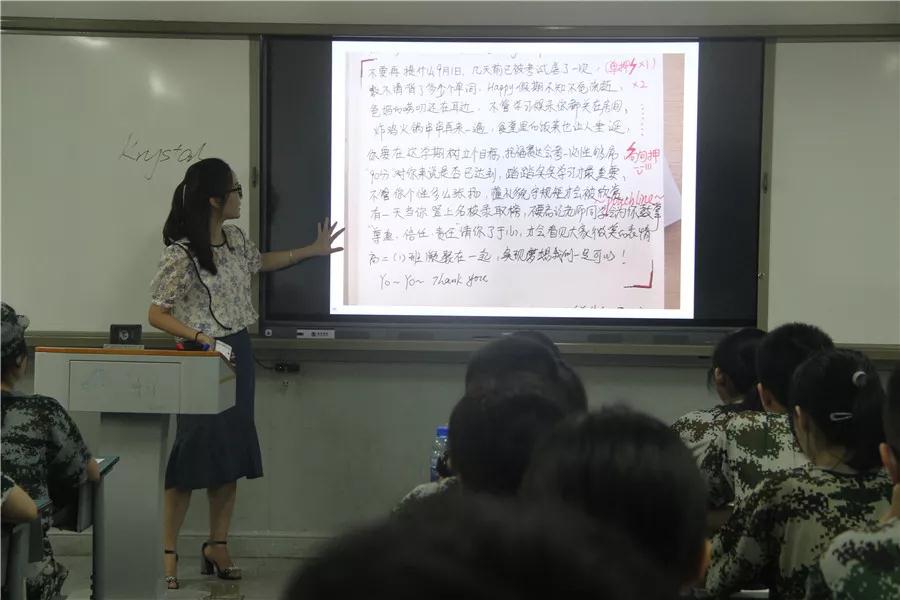 Krystal
不要再提什么9月1日，几天前已被考试虐了一次，(单押 ×1)
数不清背了多少个单词，Happy假期不知不觉流逝， ×2
爸妈的唠叨还在耳边，不管学习娱乐你都关在房间，
炸鸡火锅串串再来一遍，食堂里的饭菜也让人垂涎，
你要在这学期树立个目标， 句句押
90分对你来说是否已达到，踏踏实实学习才最重要，
不管你个性多么张扬，懂礼貌守规矩才会被欣赏 ~punchline~
有一天当你登上名校录取榜，不要忘记老师同学会为你鼓掌
尊重、信任、责任请你了于心，才会看见大家微笑的表情
高二(1)班凝聚在一起，实现梦想我们一定可以！
Yo~ Yo~ Thank you